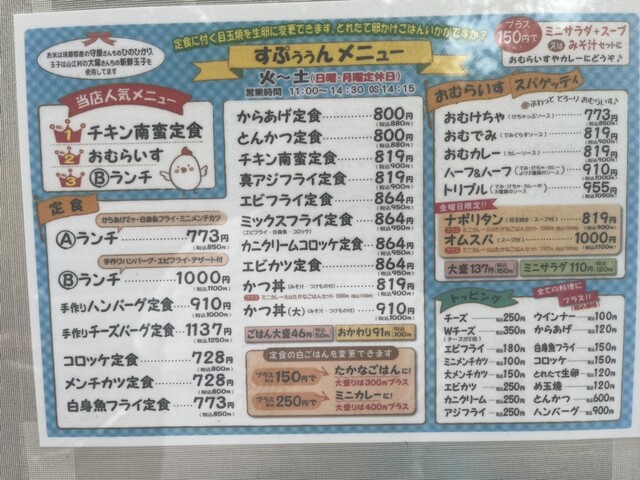 お米は球磨郡産の守屋さんちのひのひかり、
玉子は山江村の大塚さんちの新鮮玉子を
使用してます
定食に付く目玉焼を生卵に変更できます。とれたて卵かけごはんいかがですか？
すぷぅぅんメニュー
火〜土（日曜・月曜定休日）
営業時間 11:00〜14:30 OS14:15
プラス150円で
ミニサラダ+スープ
又は みそ汁セットに
おむらいすやカレーにどうぞ♪
当店人気メニュー
1 チキン南蛮定食
2 おむらいす
3 Ⓑランチ
定食
からあげ2ヶ・白身魚フライ・ミニメンチカツ
Ⓐランチ 773円（税込850円）
手作りハンバーグ・エビフライ・デザート付
Ⓑランチ 1000円（税込1100円）
手作りハンバーグ定食 910円（税込1000円）
手作りチーズバーグ定食 1137円（税込1250円）
コロッケ定食 728円（税込800円）
メンチカツ定食 728円（税込800円）
白身魚フライ定食 773円（税込850円）
からあげ定食 800円（税込880円）
とんかつ定食 800円（税込880円）
チキン南蛮定食 819円（税込900円）
真アジフライ定食 819円（税込900円）
エビフライ定食 864円（税込950円）
ミックスフライ定食 864円（税込950円）
（エビフライ・白身魚・コロッケ）
カニクリームコロッケ定食 864円（税込950円）
エビカツ定食 864円（税込950円）
かつ丼（みそ汁・つけもの付） 819円（税込900円）
かつ丼（大）（みそ汁・つけもの付） 910円（税込1000円）
ごはん大盛46円（税込50円） おかわり91円（税込100円）
定食の白ごはんを変更できます
プラス 税込150円で たかなごはんに！
大盛りは300円プラス
プラス 税込250円で ミニカレーに！
大盛りは400円プラス
おむらいす スパゲッティ
ふわって とろ〜り おむらいす♪
おむけちゃ（けちゃっぷソース） 773円（税込850円）
おむでみ（でみぐらすソース） 819円（税込900円）
おむカレー（カレーソース） 819円（税込900円）
ハーフ&ハーフ（でみ・けちゃ・カレーより2種類のソース） 910円（税込1000円）
トリプル（でみ・けちゃ・カレーの3種類のソース） 955円（税込1050円）
金曜日限定!!
ナポリタン（目玉焼き・スープ付） 819円（税込900円）
オムスパ（スープ付） 1000円（税込1100円）
大盛 137円（税込150円） ミニサラダ 110円（税込120円）
トッピング
全ての料理にプラス!!
チーズ 税込250円
Wチーズ 税込350円
（チーズが2倍）
エビフライ 税込180円
ミニメンチカツ 税込100円
大メンチカツ 税込150円
エビカツ 税込250円
カニクリーム 税込250円
アジフライ 税込250円
ウインナー 税込100円
からあげ 税込120円
白身魚フライ 税込150円
コロッケ 税込150円
とれたて生卵 税込120円
め玉焼 税込120円
とんかつ 税込600円
ハンバーグ 税込900円